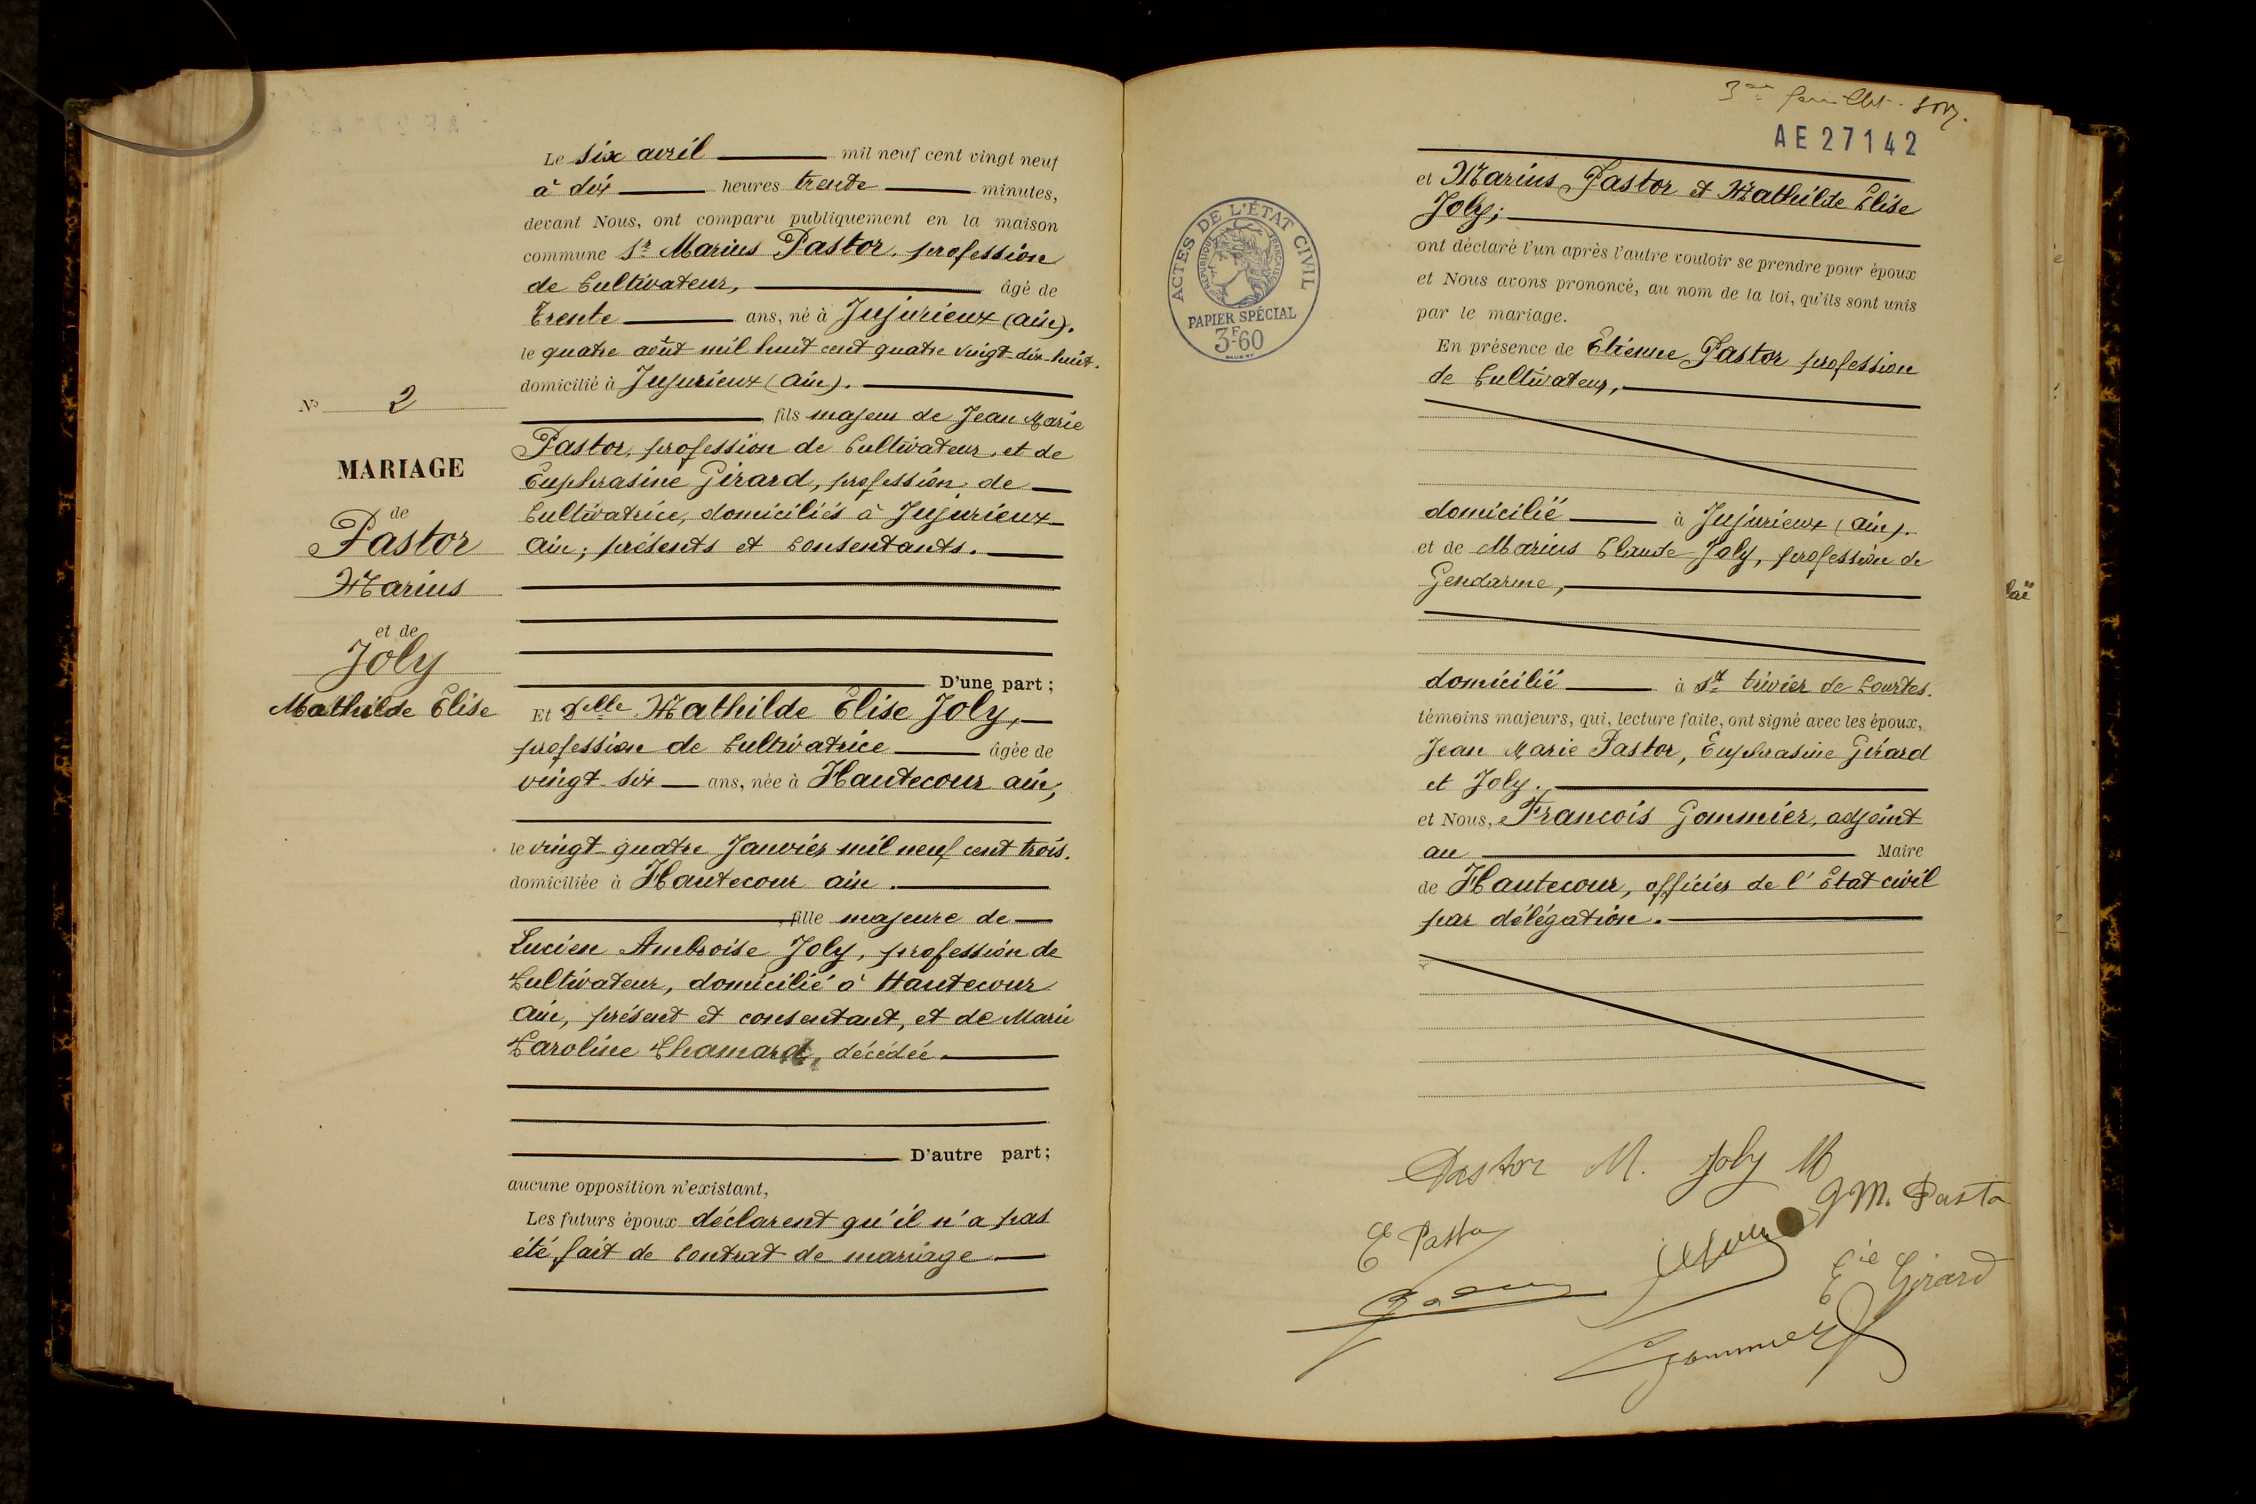 Le six avril mil neuf cent vingt neuf
à dix heures trente minutes,
devant Nous, ont comparu publiquement en la maison
commune Sr Marius Pastor, profession
de Cultivateur, âgé de
Trente ans, né à Jujurieux (Ain).
le quatre août mil huit cent quatre vingt-dix-huit.
domicilié à Jujurieux (Ain).
fils majeur de Jean Marie
Pastor, profession de Cultivateur, et de
Euphrasine Girard, profession de
Cultivatrice, domiciliés à Jujurieux
Ain; présents et consentants.
D'une part;
Et Delle Mathilde Elise Joly,
profession de Cultivatrice âgée de
vingt-six ans, née à Hautecour Ain,
le vingt-quatre Janvier mil neuf cent trois.
domiciliée à Hautecour Ain.
fille majeure de
Lucien Ambroise Joly, profession de
Cultivateur, domicilié à Hautecour
Ain, présent et consentant, et de Marie
Caroline Chamard, décédée.
D'autre part;
aucune opposition n'existant,
Les futurs époux déclarent qu'il n'a pas
été fait de Contrat de mariage
No 2
MARIAGE
de
Pastor
Marius
et de
Joly
Mathilde Elise
3me feuillet.
AE 27142
ACTES DE L'ÉTAT CIVIL
RÉPUBLIQUE FRANÇAISE
PAPIER SPÉCIAL
3F60
et Marius Pastor et Mathilde Elise
Joly;
ont déclaré l'un après l'autre vouloir se prendre pour époux
et Nous avons prononcé, au nom de la loi, qu'ils sont unis
par le mariage.
En présence de Etienne Pastor profession
de Cultivateur,
domicilié à Jujurieux (Ain).
et de Marius Claude Joly, profession de
Gendarme,
domicilié à St trivier de Courtes.
témoins majeurs, qui, lecture faite, ont signé avec les époux,
Jean Marie Pastor, Euphrasine Girard
et Joly.
et Nous, Francois Gommier, adjoint
au Maire
de Hautecour, officier de l'Etat civil
par délégation.
Pastor M. Joly M
J M. Pasto
E Pastor
Eie Girard
Gommier